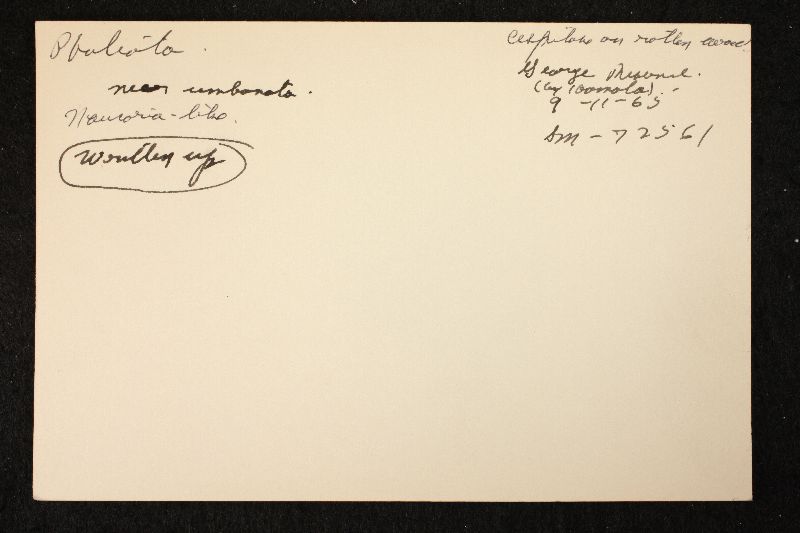 Pholiota .
near umbonata .
Naucoria-like.
Written up
Cespitose on rotten wood
George Reserve.
9 -11-65
Sm - 72561